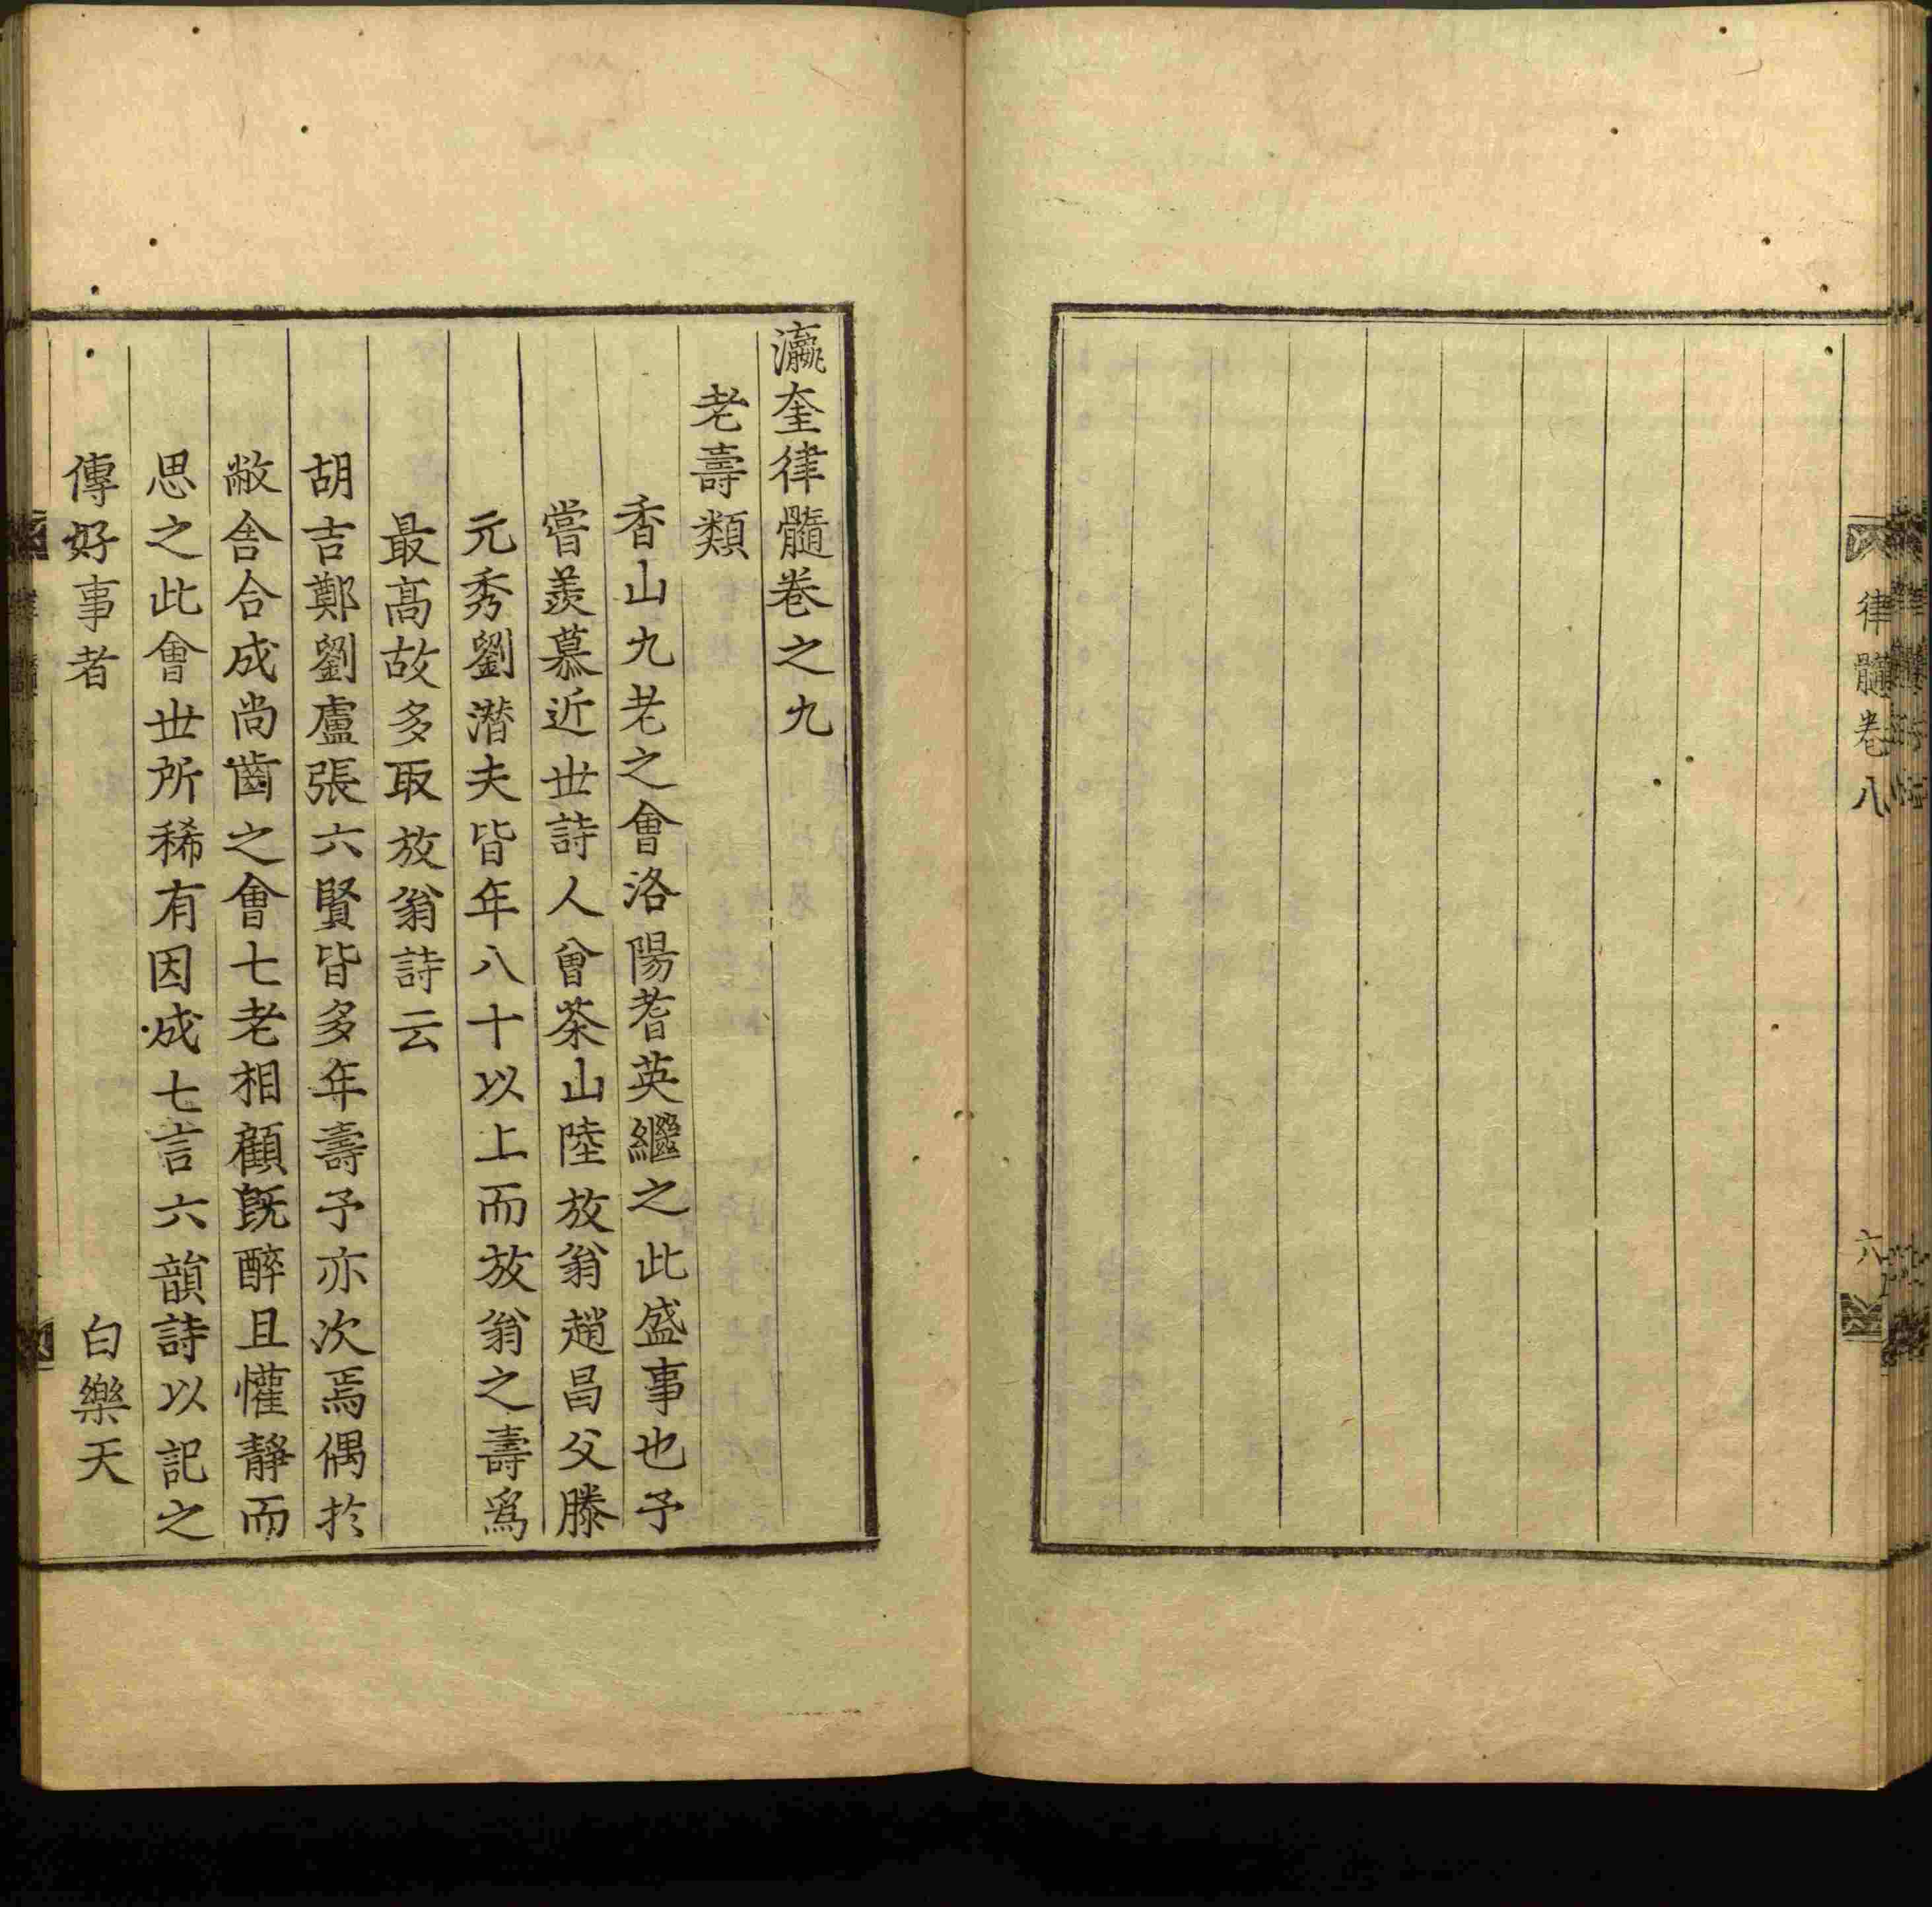 律髓卷八
六
瀛奎律髓卷之九
老壽類
香山九老之會洛陽耆英繼之此盛事也予
嘗羨慕近世詩人曾茶山陸放翁趙昌父滕
元秀劉潜夫皆年八十以上而放翁之壽爲
最高故多取放翁詩云
胡吉鄭劉盧張六賢皆多年壽予亦次焉偶於
敝舎合成尚齒之會七老相顧旣醉且懽靜而
思之此會世所稀有因成七言六韻詩以記之
傳好事者
白樂天